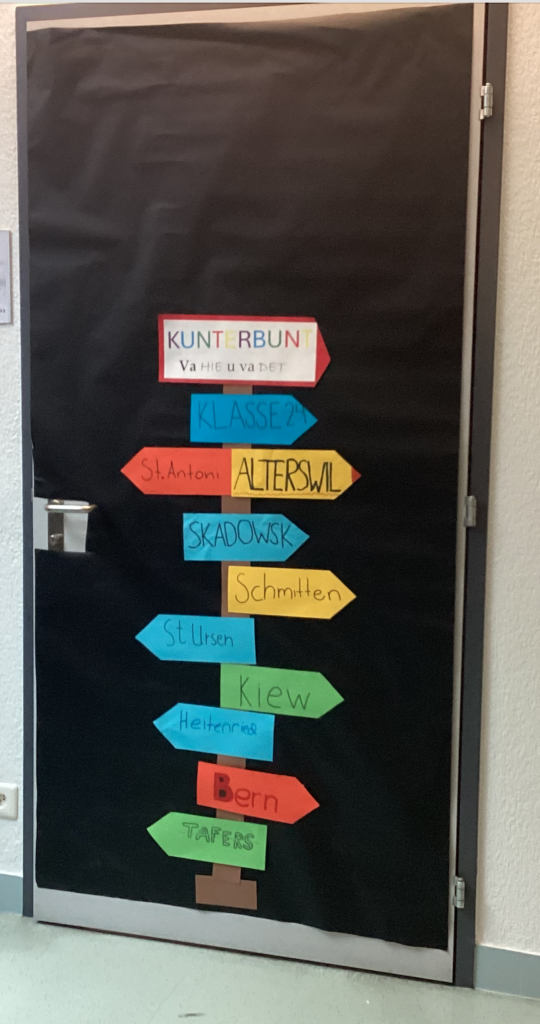 KUNTERBUNT
Va HIE u va DET
KLASSE 24
St. Antoni ALTERSWIL
SKADOWSK
Schmitten
St. Ursen
Kiew
Heitenried
Bern
TAFERS